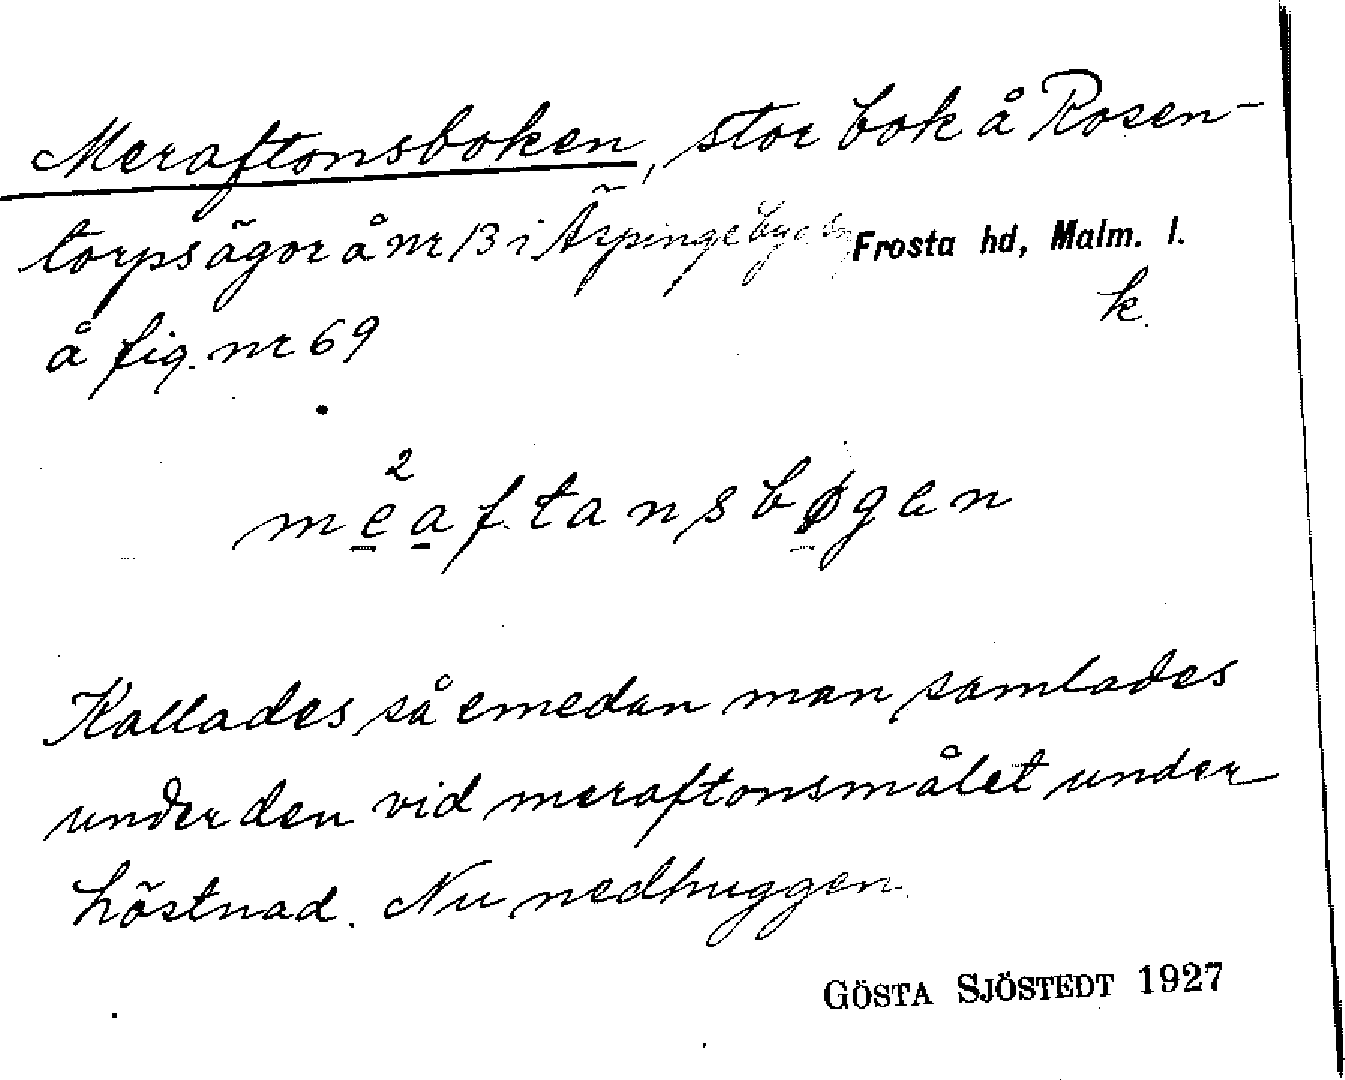 Meraftonsboken, stor bok å Rosen-
torps ägor å nr 13 i Äspinge Frosta hd, Malm. l.
k.
å fig. nr 69
2
meaftansbøgen
Kallades så emedan man samlades
under den vid meraftonsmålet under
höstnad. Nu nedhuggen.
GÖSTA SJÖSTEDT 1927